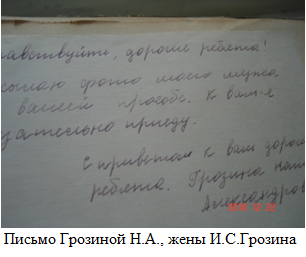 дравствуйте, дорогие ребята!
сылаю фото моего мужа
вашей просьбе. К вам я
зательно приеду.
С приветом к вам дорогие
ребята. Грозина
Александров
Письмо Грозиной Н.А., жены И.С.Грозина